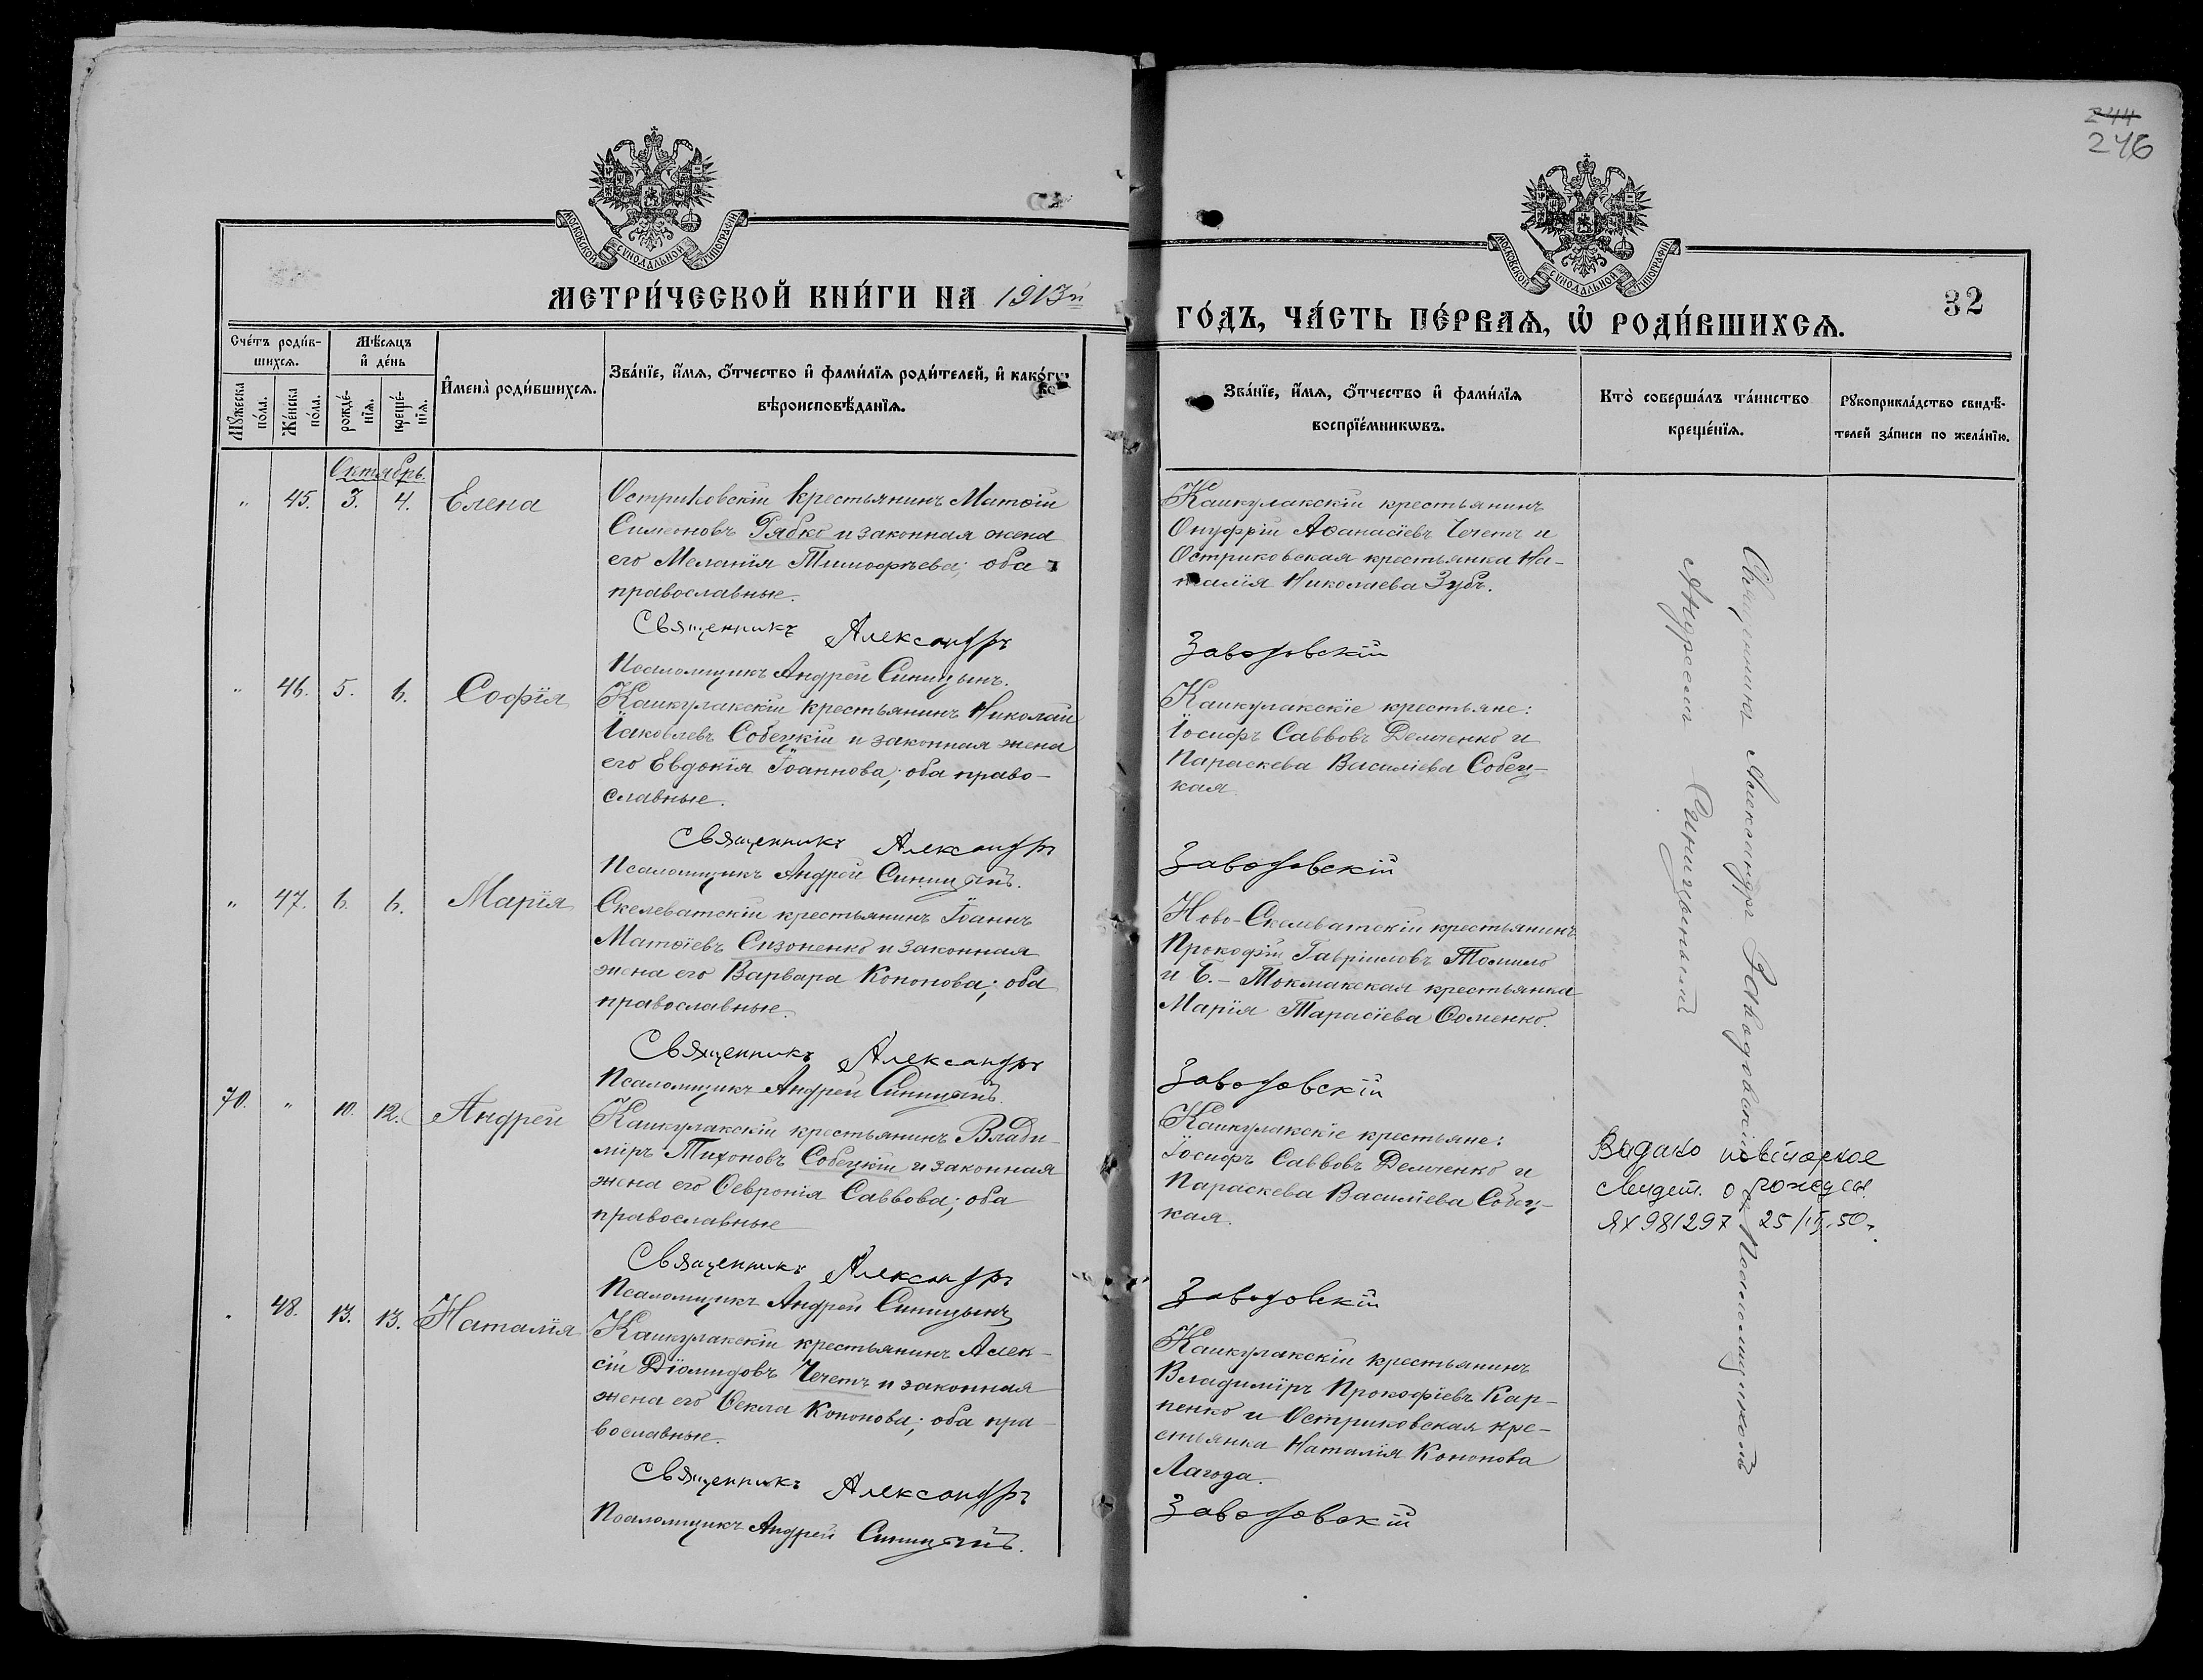 244
246
МОСКОВСКОЙ СѴНОДАЛЬНОЙ ТИПОГРАФІИ
МОСКОВСКОЙ СѴНОДАЛЬНОЙ ТИПОГРАФІИ
МЕТРИ́ЧЕСКОЙ КНИ́ГИ НА 1913й
ГО́ДЪ, ЧА́СТЬ ПЕ́РВАѦ, Ѡ҆ РОДИ́ВШИХСѦ.
32
Сче́тъ роди́в-
шихсѧ.
Мꙋ́жеска
по́ла.
Же́нска
по́ла.
Мѣ́сѧцъ
и҆ де́нь
рожде́-
нїѧ.
креще́-
нїѧ.
И҆мена̀ роди́вшихсѧ.
Зва́нїе, и҆́мѧ, ѻ҆́тчество и҆ фами́лїѧ роди́телей, и҆ како́гѡ
вѣроисповѣ́данїѧ.
Зва́нїе, и҆́мѧ, ѻ҆́тчество и҆ фами́лїѧ
воспрїе́мникѡвъ.
Кто̀ соверша́лъ та́инство
креще́нїѧ.
Рꙋкоприкла́дство свидѣ́-
телей за́писи по жела́нїю.
Октябрь.
" 45. 3. 4. Елена
Остриковскій крестьянинъ Матѳій
Симеоновъ Рябко и законная жена
его Меланія Тимофѣева; оба
православные.
Священникъ Александръ
Псаломщикъ Андрей Синицынъ.
Кашкулакскій крестьянинъ
Онуфрій Аѳанасіевъ Чечетъ и
Остриковская крестьянка На-
талія Николаева Зубъ.
Заводовскій
" 46. 5. 6. Софія
Кашкулакскій крестьянинъ Николай
Іаковлевъ Собецкій и законная жена
его Евдокія Іоаннова; оба право-
славные.
Священникъ Александръ
Псаломщикъ Андрей Синицынъ.
Кашкулакскіе крестьяне:
Іосифъ Саввовъ Демченко и
Параскева Василіева Собец-
кая.
Заводовскій
" 47. 6. 6. Марія
Скелеватскій крестьянинъ Іоаннъ
Матѳіевъ Сизоненко и законная
жена его Варвара Кононова; оба
православные.
Священникъ Александръ
Псаломщикъ Андрей Синицынъ.
Ново-Скелеватскій крестьянинъ
Прокофій Гавріиловъ Томило
и Б.-Токмакская крестьянка
Марія Тарасіева Ѳоменко.
Заводовскій
70. " 10. 12. Андрей
Кашкулакскій крестьянинъ Влади-
міръ Тихоновъ Собецкій и законная
жена его Ѳевронія Саввова; оба
православные
Священникъ Александръ
Псаломщикъ Андрей Синицынъ
Кашкулакскіе крестьяне:
Іосифъ Саввовъ Демченко и
Параскева Василіева Собец-
кая.
Заводовскій
" 48. 13. 13. Наталія
Кашкулакскій крестьянинъ Алек-
сій Діомидовъ Чечетъ и законная
жена его Ѳекла Кононова; оба пра-
вославные.
Священникъ Александръ
Псаломщикъ Андрей Синицынъ.
Кашкулакскій крестьянинъ
Владиміръ Прокофіевъ Кар-
пенко и Остриковская кре-
стьянка Наталія Кононова
Лагода.
Заводовскій
Священникъ Александръ Заводовскій съ Псаломщикомъ
Андреемъ Синицынымъ
Видано повторное
свидет. о рожден.
ЯХ 981297 25/IV.50г.